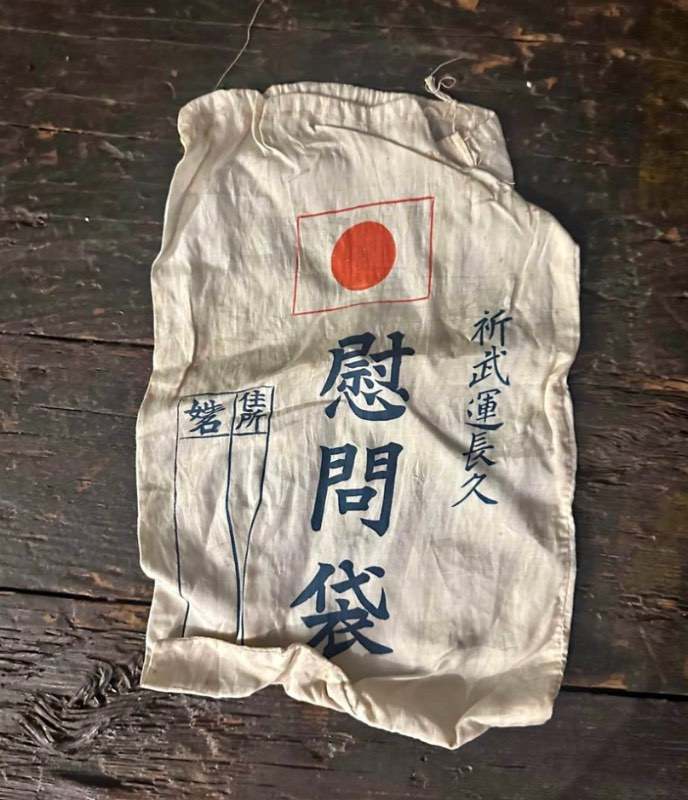 祈武運長久
慰問袋
住所
姓名